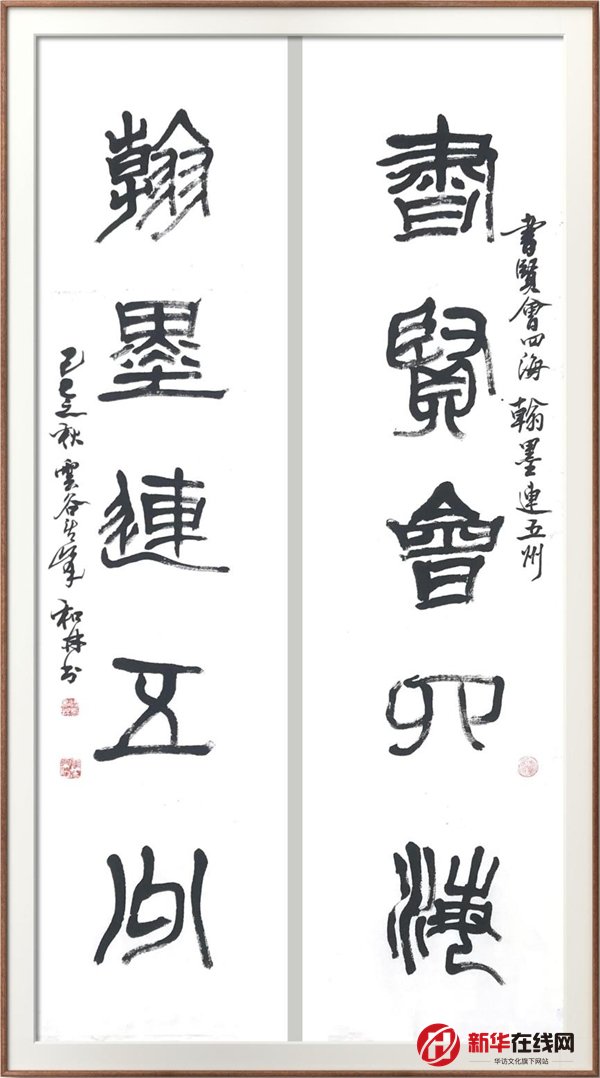 書賢會四海 翰墨連五州
書賢會四海
翰墨連五州
秋 雲谷 峰 和林书
新华在线网
华访文化旗下网站